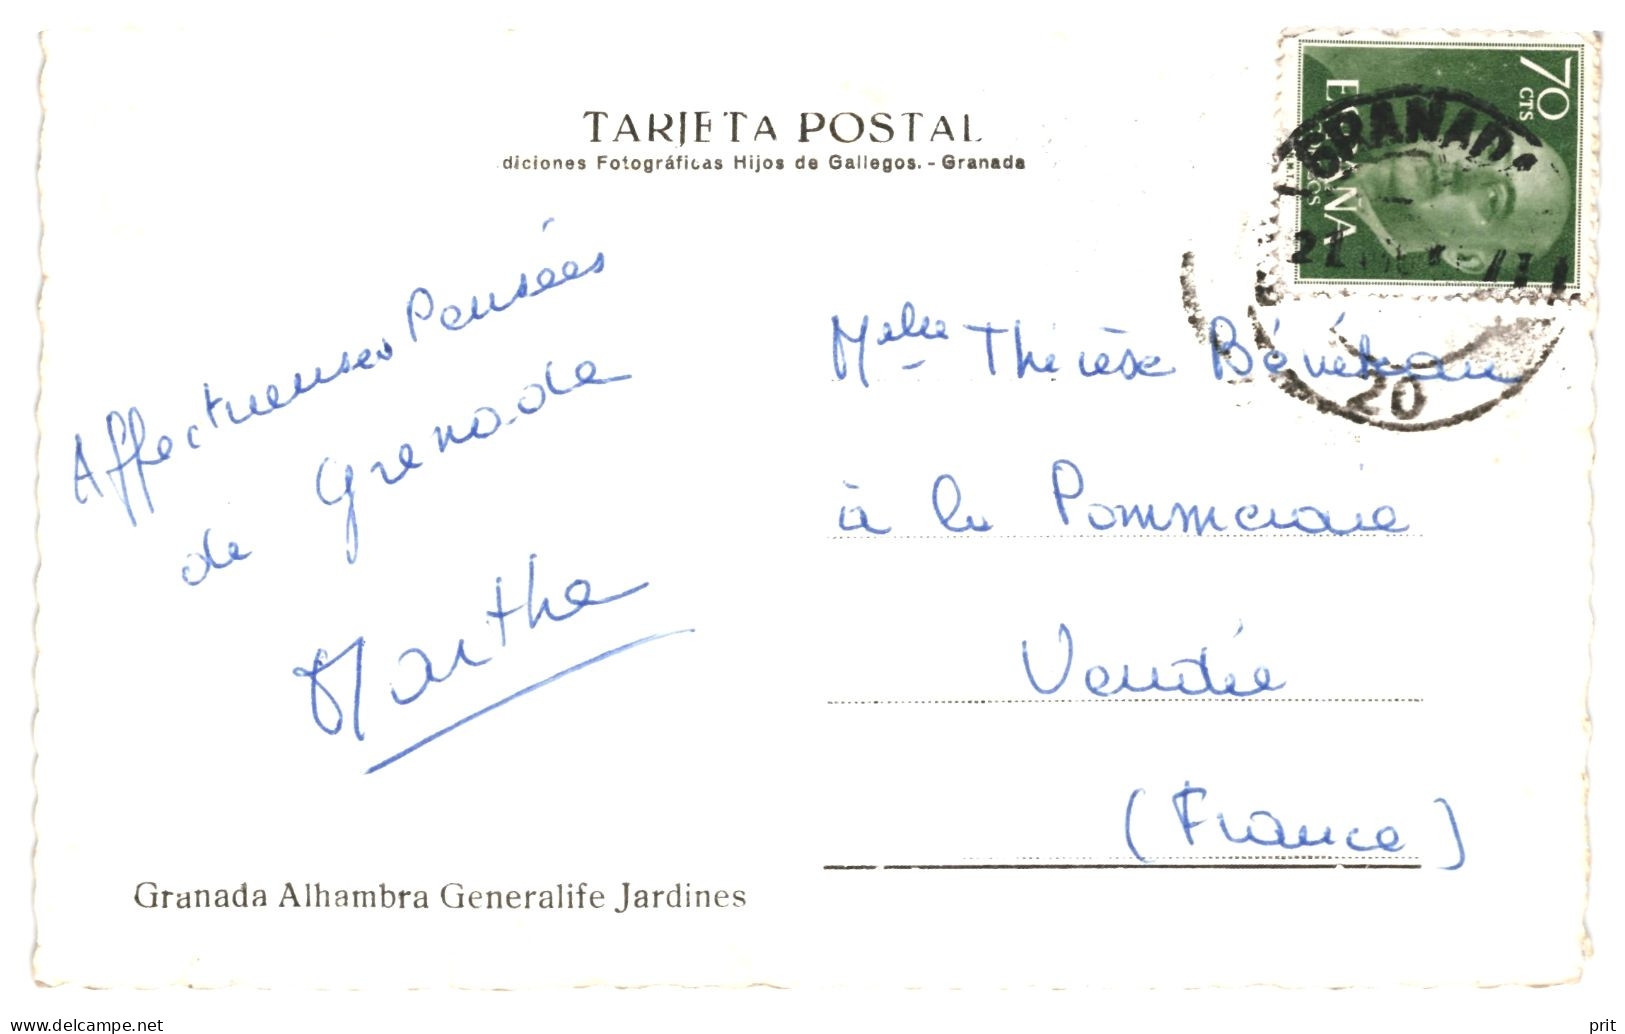 TARJETA POSTAL
diciones Fotográficas Hijos de Gallegos. - Granada
70 CTS
ESPAÑA
GRANADA
20
Affectueuses Pensées
de Grenade
Marthe
Melle Thérèse Bénéteau
à la Pommeraie
Vendée
(France)
Granada Alhambra Generalife Jardines
www.delcampe.net
prit